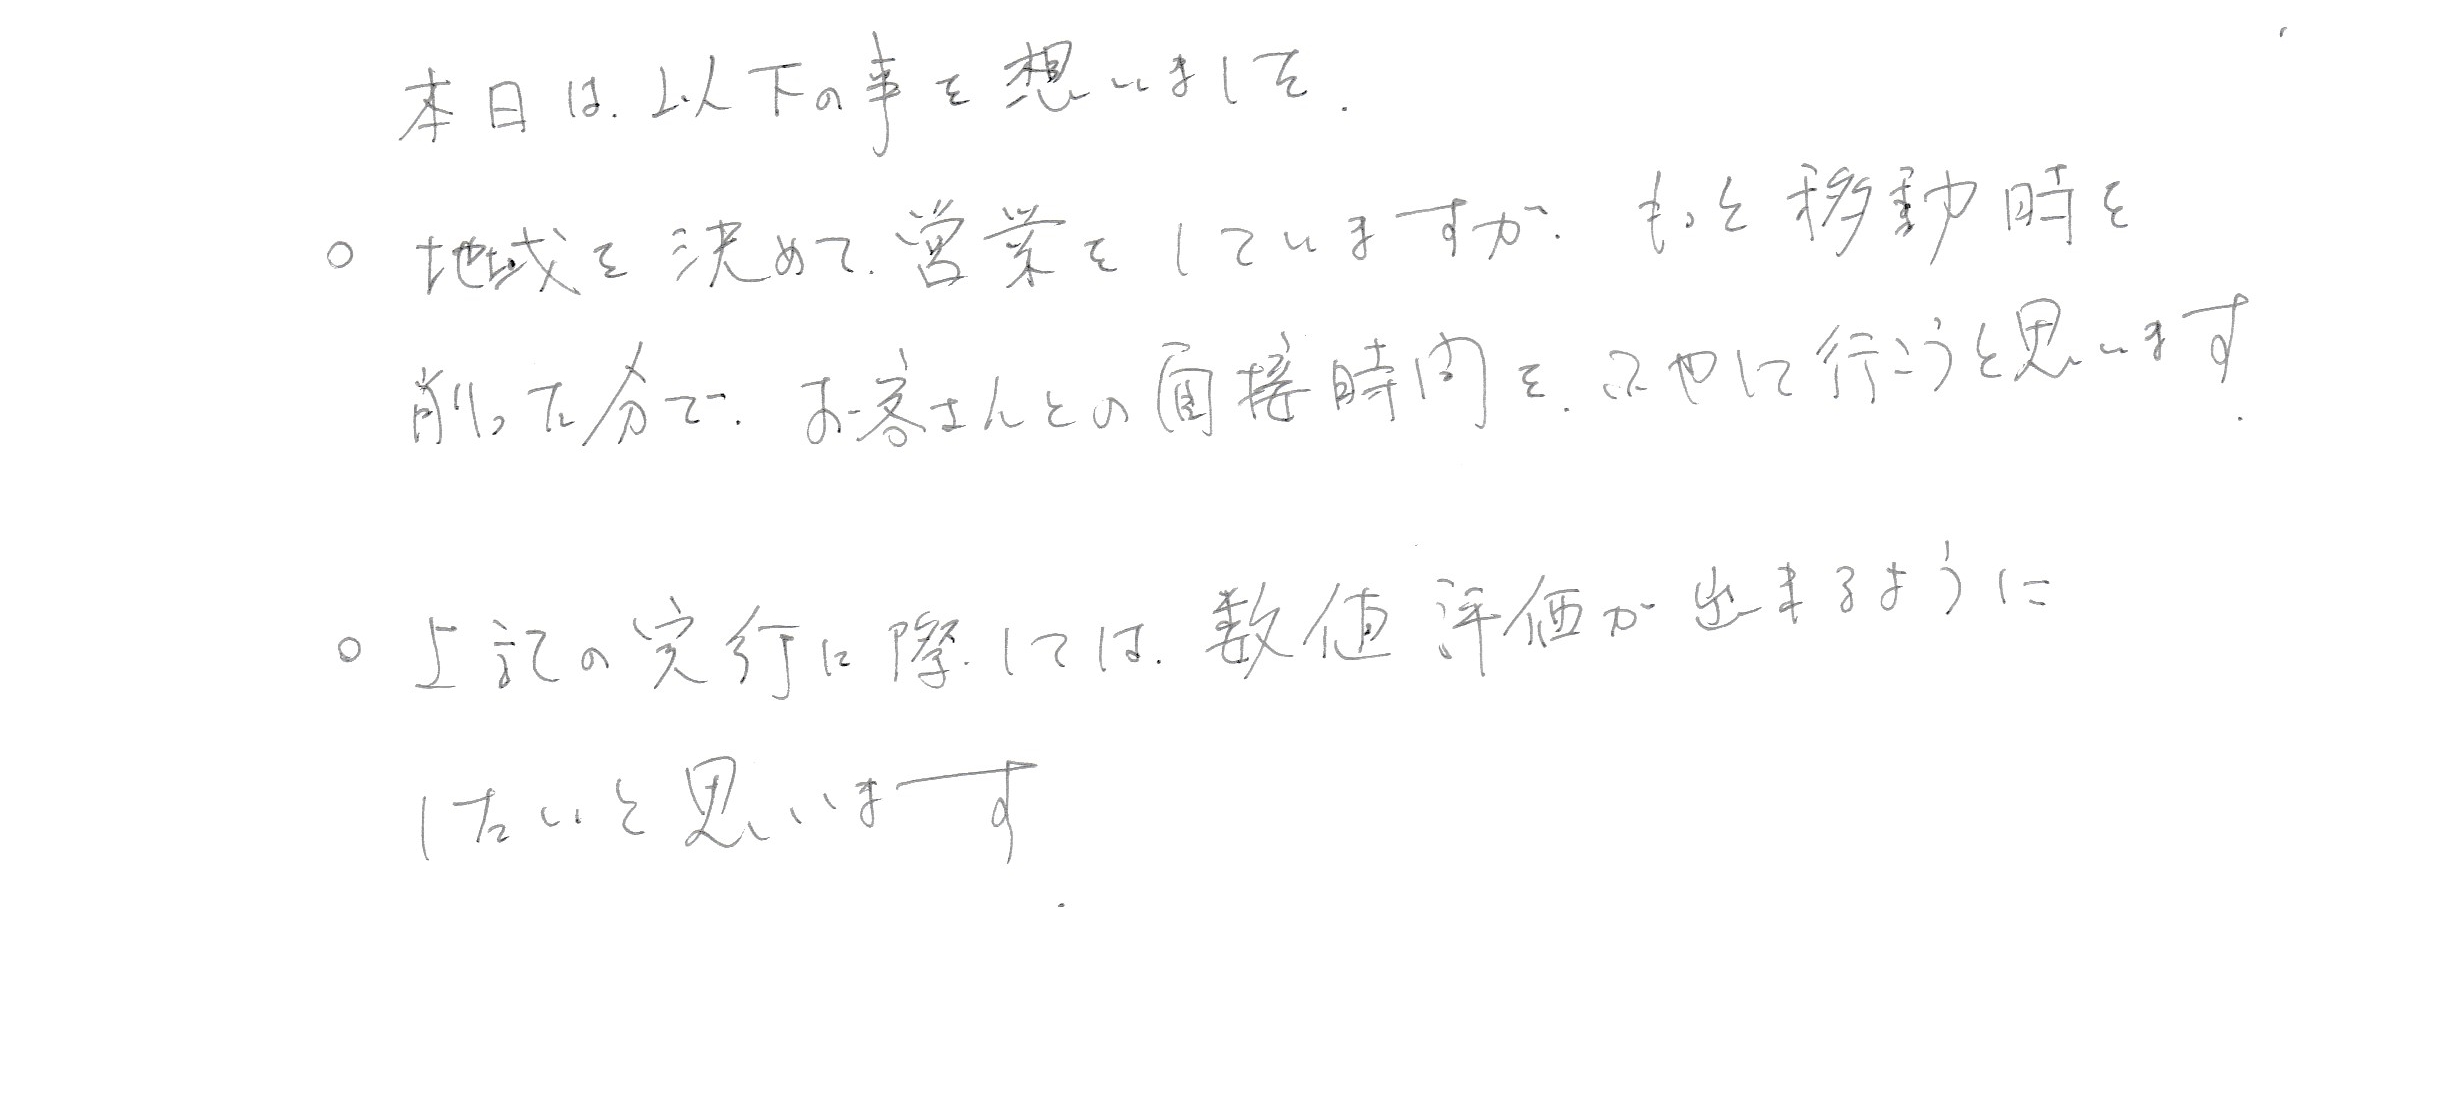 本日は、以下の事を想いました。
○ 地域を決めて、営業をしていますが、もっと移動時を
削った分で、お客さんとの面接時間を、ふやして行こうと思います。
○ 上記の実行に際しては、数値評価が出来るように
したいと思います。